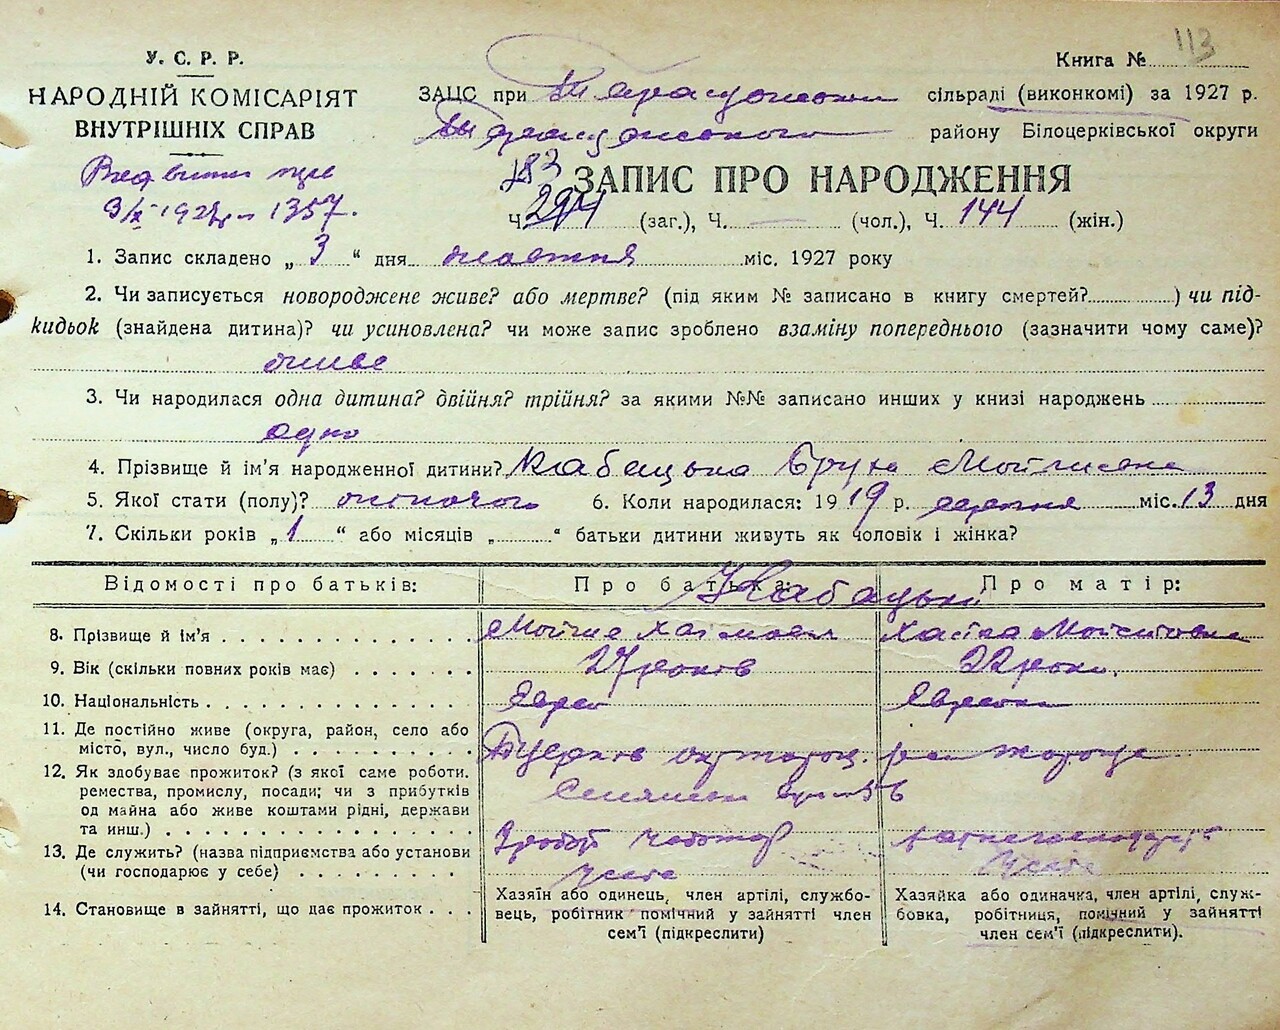 У. С. Р. Р.
Книга № 113
НАРОДНІЙ КОМІСАРІЯТ
ВНУТРІШНІХ СПРАВ
ЗАЦС при Таращанськім сільраді (виконкомі) за 1927 р.
Таращанського району Білоцерківської округи
3/X 1927 р. 1357.
183
ЗАПИС ПРО НАРОДЖЕННЯ
Ч. 294 (заг.), Ч. — (чол.), Ч. 144 (жін.)
1. Запис складено „ 3 “ дня жовтня міс. 1927 року
2. Чи записується новороджене живе? або мертве? (під яким № записано в книгу смертей?) чи під-
кидьок (знайдена дитина)? чи усиновлена? чи може запис зроблено взаміну попереднього (зазначити чому саме)?
живе
3. Чи народилася одна дитина? двійня? трійня? за якими №№ записано инших у книзі народжень
одно
4. Прізвище й ім'я народженної дитини?
5. Якої стати (полу)? жіночого 6. Коли народилася: 1919 р. серпня міс. 13 дня
7. Скільки років „ 1 “ або місяців „ “ батьки дитини живуть як чоловік і жінка?
Відомості про батьків: Про батька: Про матір:
8. Прізвище й ім'я Мойше Хаімович Хаіка Мойсіївна
9. Вік (скільки повних років має) 27 років 22 роки.
10. Національність Еврей Еврейка
11. Де постійно живе (округа, район, село або
місто, вул., число буд.)
12. Як здобуває прожиток? (з якої саме роботи.
ремества, промислу, посади; чи з прибутків
од майна або живе коштами рідні, держави
та инш.)
13. Де служить? (назва підприємства або установи
(чи господарює у себе)
14. Становище в зайнятті, що дає прожиток
Хазяїн або одинець, член артілі, службо-
вець, робітник помічний у зайнятті член
сем'ї (підкреслити)
Хазяйка або одиначка, член артілі, служ-
бовка, робітниця, помічний у зайнятті
член сем'ї (підкреслити).